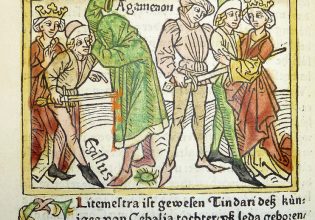 Agamenon
Egistus
Litemestra ist gewesen Tindari deß kün-
iges von Cebalia tochter vß leda geboren